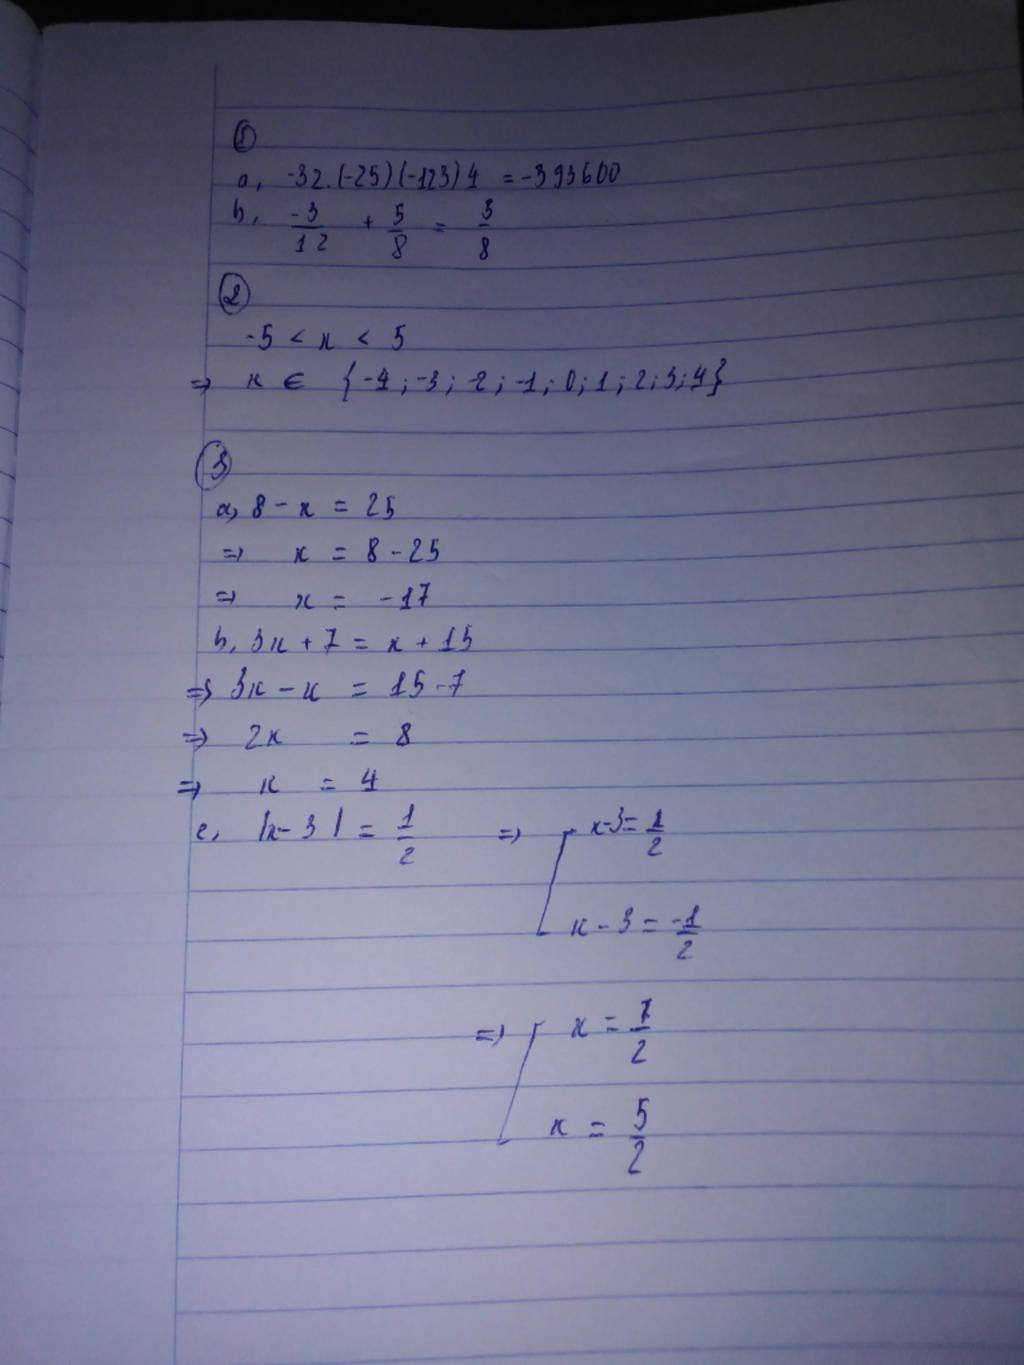 ①
a, -32.(-25)(-123)4 = -393600
b, -3/12 + 5/8 = 3/8
②
-5 < x < 5
=> x ∈ {-4;-3;-2;-1;0;1;2;3;4}
③
a, 8 - x = 25
=> x = 8 - 25
=> x = -17
b, 3x + 7 = x + 15
=> 3x - x = 15 - 7
=> 2x = 8
=> x = 4
c, |x - 3| = 1/2 => [ x - 3 = 1/2
x - 3 = -1/2
=> [ x = 7/2
x = 5/2